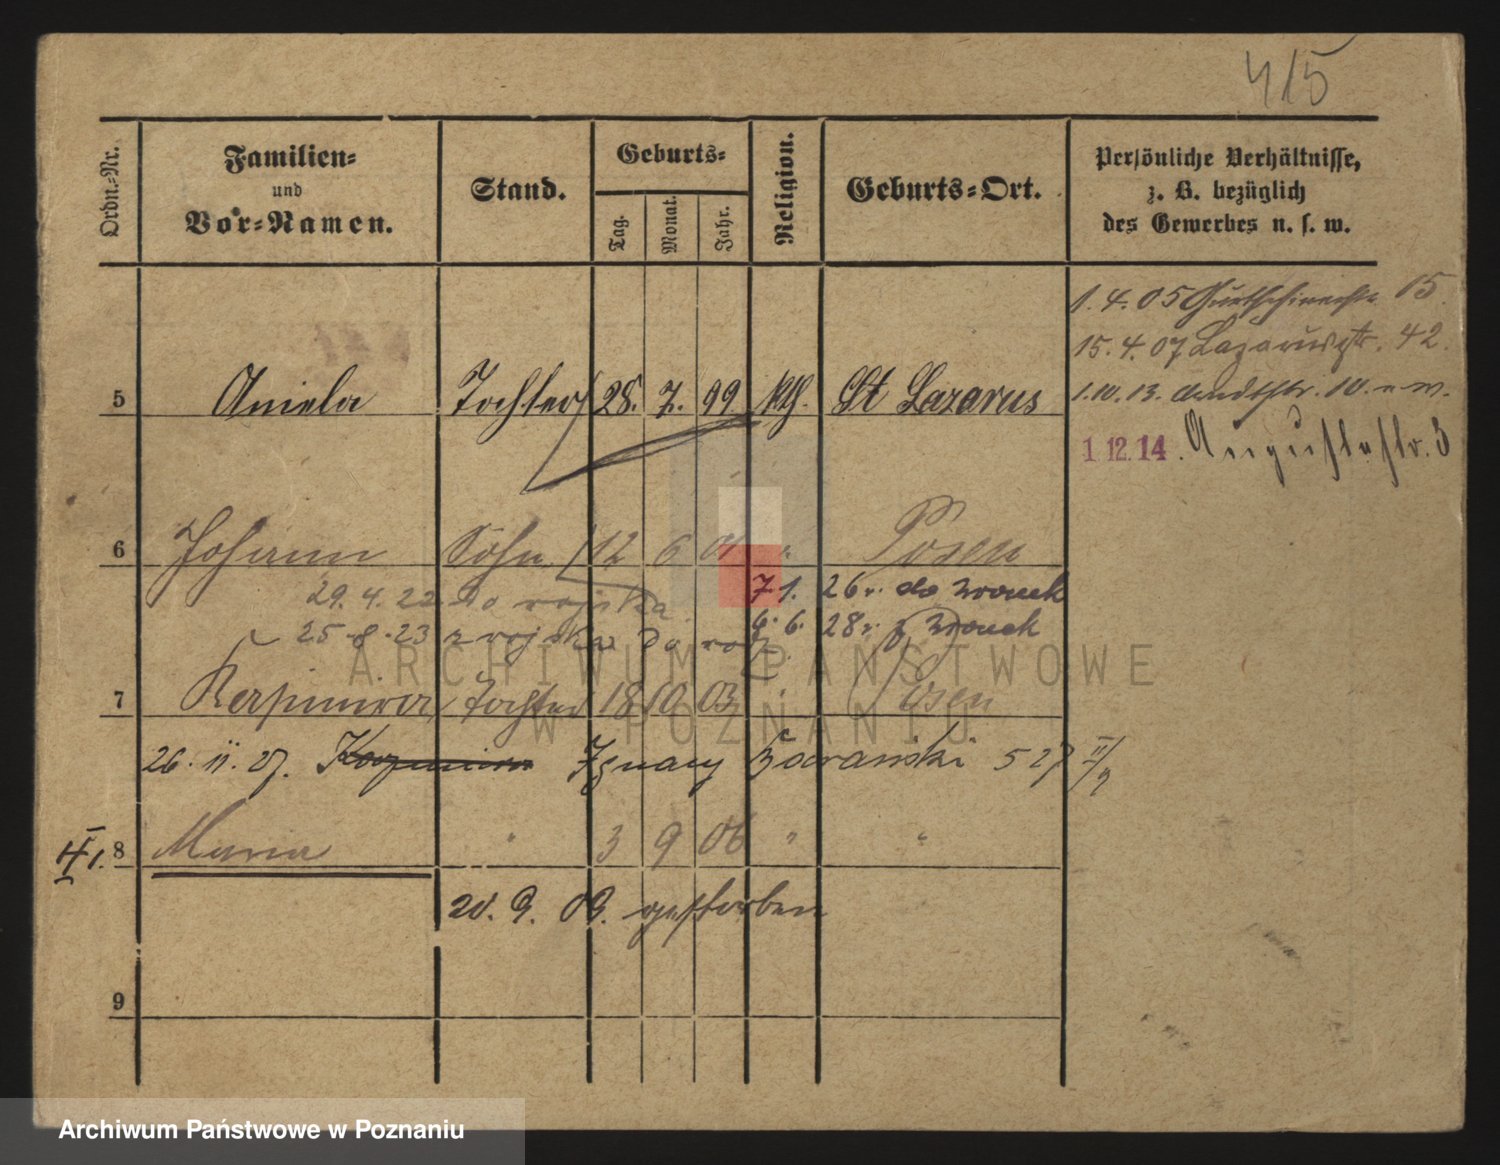 415
Ordn.-Nr.
Familien-
und
Vor-Namen.
Stand.
Geburts-
Tag.
Monat.
Jahr.
Religion.
Geburts-Ort.
Persönliche Verhältnisse,
z. B. bezüglich
des Gewerbes u. s. w.
1. 4. 05 15.
15. 4. 07 Lazarusstr. 42.
1.10.13. 10.
5 Aniela Tochter 28. 7. 99 kth. St Lazarus
1 12. 14. Augustastr. 3
6 Johann Sohn 12 6 01 " Posen
29. 4. 22 do wojska
7. 1. 26 r. do Wronek
25. 8. 23 z wojska do
6. 6. 28 r. z Wronek
7 Kasimira Tochter 18 10 03 " Posen
26. 11. 27. Kazimiera Ignacy 5 27
8 Maria " 3 9 06 " "
20. 9. 09. gestorben
9
ARCHIWUM PAŃSTWOWE
W POZNANIU
Archiwum Państwowe w Poznaniu